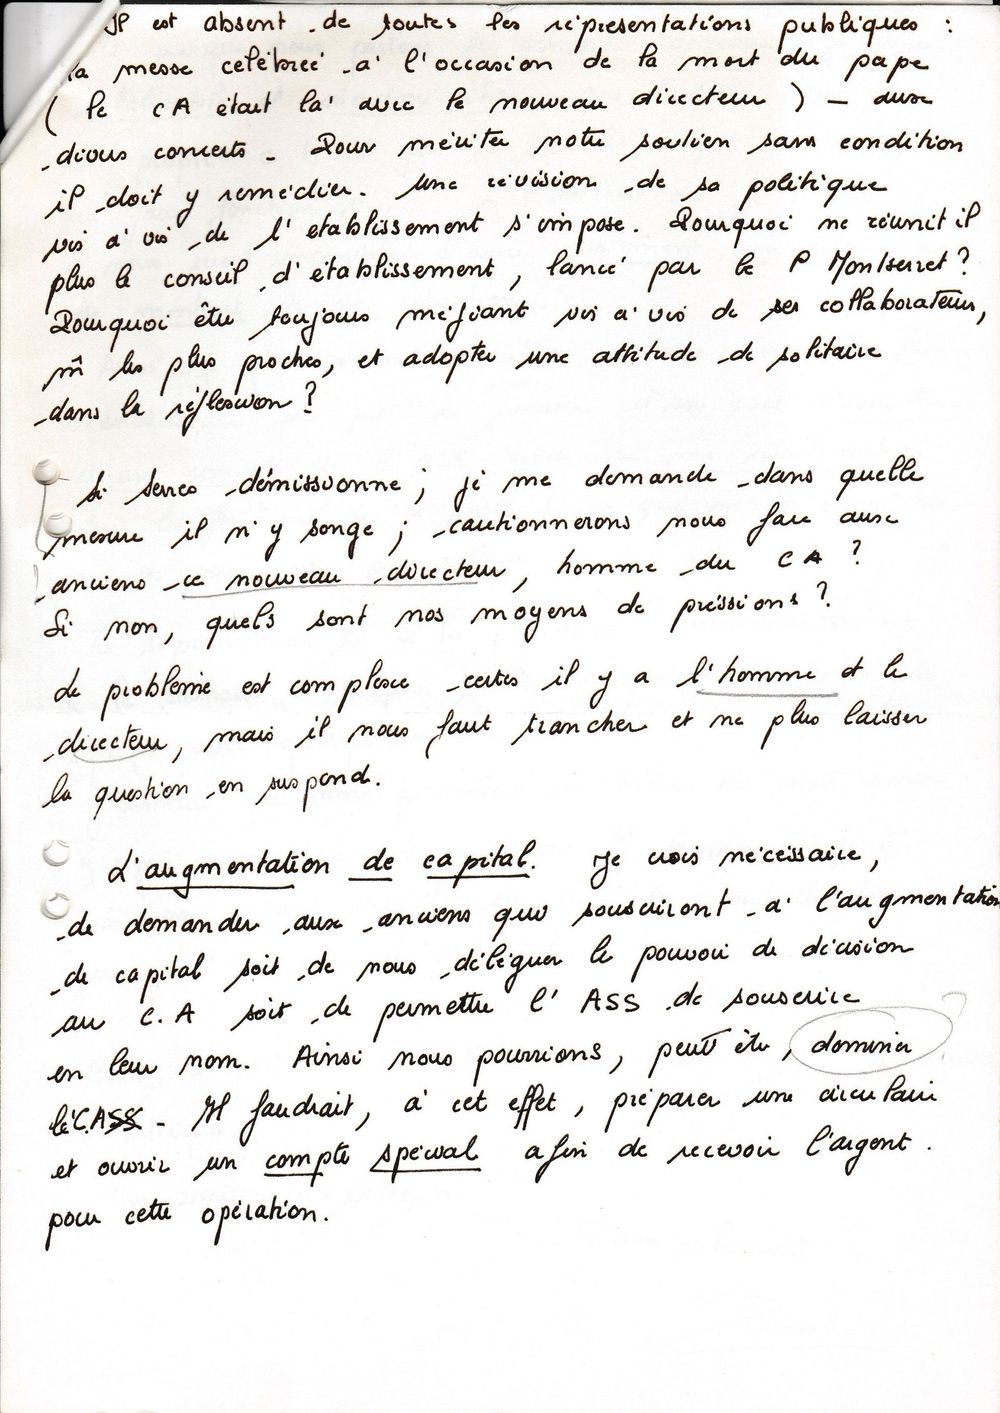 Il est absent de toutes les représentations publiques :
la messe célébrée à l'occasion de la mort du pape
( le CA était là avec le nouveau directeur ) - aux
divers concerts - Pour mériter notre soutien sans condition
il doit y remédier. Une révision de sa politique
vis à vis de l'établissement s'impose. Pourquoi ne réunit il
plus le conseil d'établissement, lancé par le P Montserret ?
Pourquoi être toujours méfiant vis à vis de ses collaborateurs,
m̂ les plus proches, et adopter une attitude de solitaire
dans la réflexion ?
Si Serres démissionne ; je me demande dans quelle
mesure il n'y songe ; cautionnerons nous face aux
anciens ce nouveau directeur, homme du CA ?
Si non, quels sont nos moyens de pressions ?
Le problème est complexe certes il y a l'homme et le
directeur, mais il nous faut trancher et ne plus laisser
la question en suspend.
L'augmentation de capital. Je crois nécessaire,
de demander aux anciens qui souscriront à l'augmentation
de capital soit de nous déléguer le pouvoir de décision
au C.A soit de permettre l'ASS de souscrire
en leur nom. Ainsi nous pourrions, peut être, dominer
le CA. Il faudrait, à cet effet, préparer une circulaire
et ouvrir un compte spécial afin de recevoir l'argent.
pour cette opération.